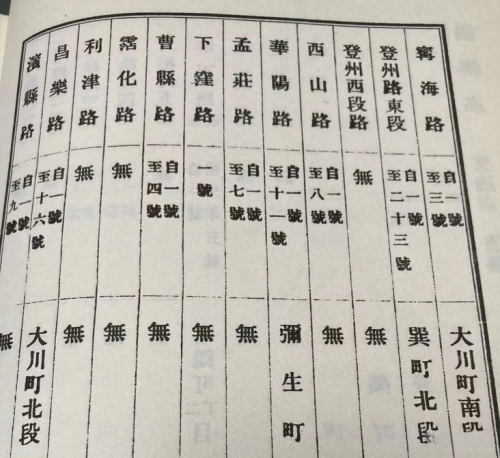 寗海路
自一號
至三號
大川町南段
登州路東段
自一號
至二十三號
巽町北段
登州西段路
無
無
西山路
自一號
至八號
無
華陽路
自一號
至十一號
彌生町
孟莊路
自一號
至七號
無
下窪路
一號
無
曹縣路
自一號
至四號
無
霑化路
無
無
利津路
無
無
昌樂路
自一號
至十六號
大川町北段
濱縣路
自一號
至九號
無